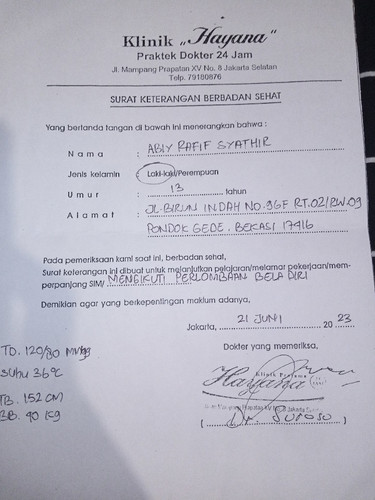 Klinik „Hayana"
Praktek Dokter 24 Jam
Jl. Mampang Prapatan XV No. 8 Jakarta Selatan
Telp. 79180876
SURAT KETERANGAN BERBADAN SEHAT
Yang bertanda tangan di bawah ini menerangkan bahwa :
Nama : ABIY RAFIF SYATHIR
Jenis kelamin : Laki-laki/Perempuan
Umur : 13 tahun
Alamat : JL. BIRUN INDAH NO. 9GF RT.02/RW.09
PONDOK GEDE. BEKASI 17416
Pada pemeriksaan kami saat ini, berbadan sehat,
Surat keterangan ini dibuat untuk melanjutkan pelajaran/melamar pekerjaan/mem-
perpanjang SIM/ MENGIKUTI PERLOMBAAN BELA DIRI
Demikian agar yang berkepentingan maklum adanya,
Jakarta, 21 JUNI 20 23
Dokter yang memeriksa,
TD. 120/80 mmHg
Suhu 36°C
TB. 152 CM
BB. 40 KG
Klinik Pratama
Hayana
Jl. Mampang Prapatan XV No. 8 Jakarta
( Dr. Suroso )